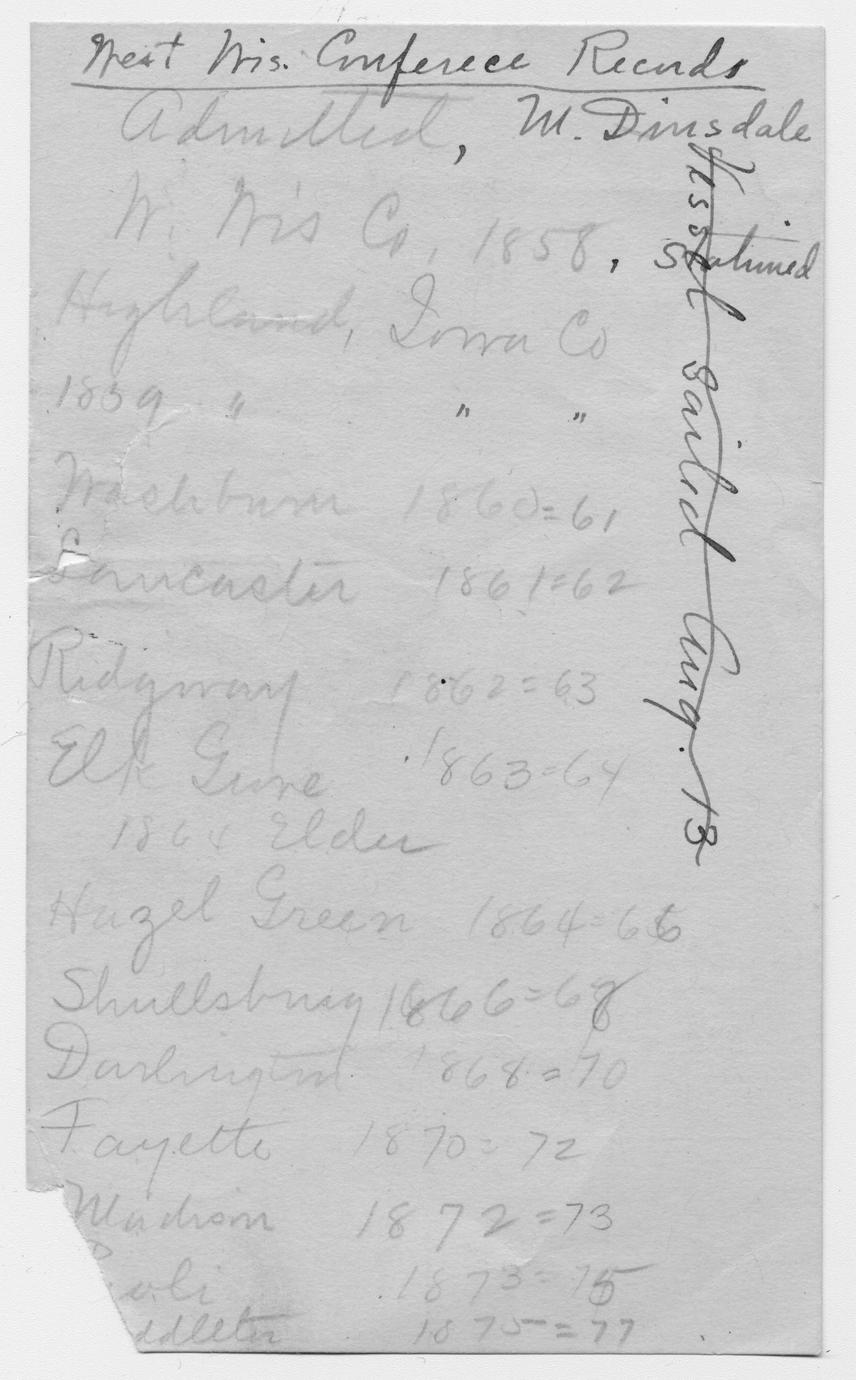 West Wis. Conferece Records
Admitted, M. Dinsdale
W. Wis Co, 1858, stationed
Highland, Iowa Co
1859 " " "
Washburn 1860=61
Lancaster 1861=62
Ridgway 1862=63
Elk Grove 1863=64
1864 Elder
Hazel Green 1864=66
Shullsburg 1866=68
Darlington 1868=70
Fayette 1870=72
Madison 1872=73
oli 1873=75
ddleton 1875=77
Vessel sailed Aug. 13